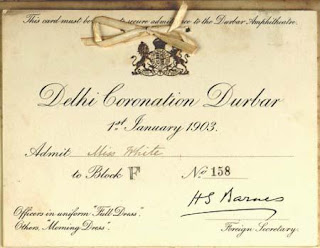 This card must be to secure admittance to the Durbar Amphitheatre.
Delhi Coronation Durbar
1st January 1903.
Admit Miss White
to Block F No 158
HS Barnes
Officers in uniform "Full Dress".
Others, "Morning Dress".
Foreign Secretary.